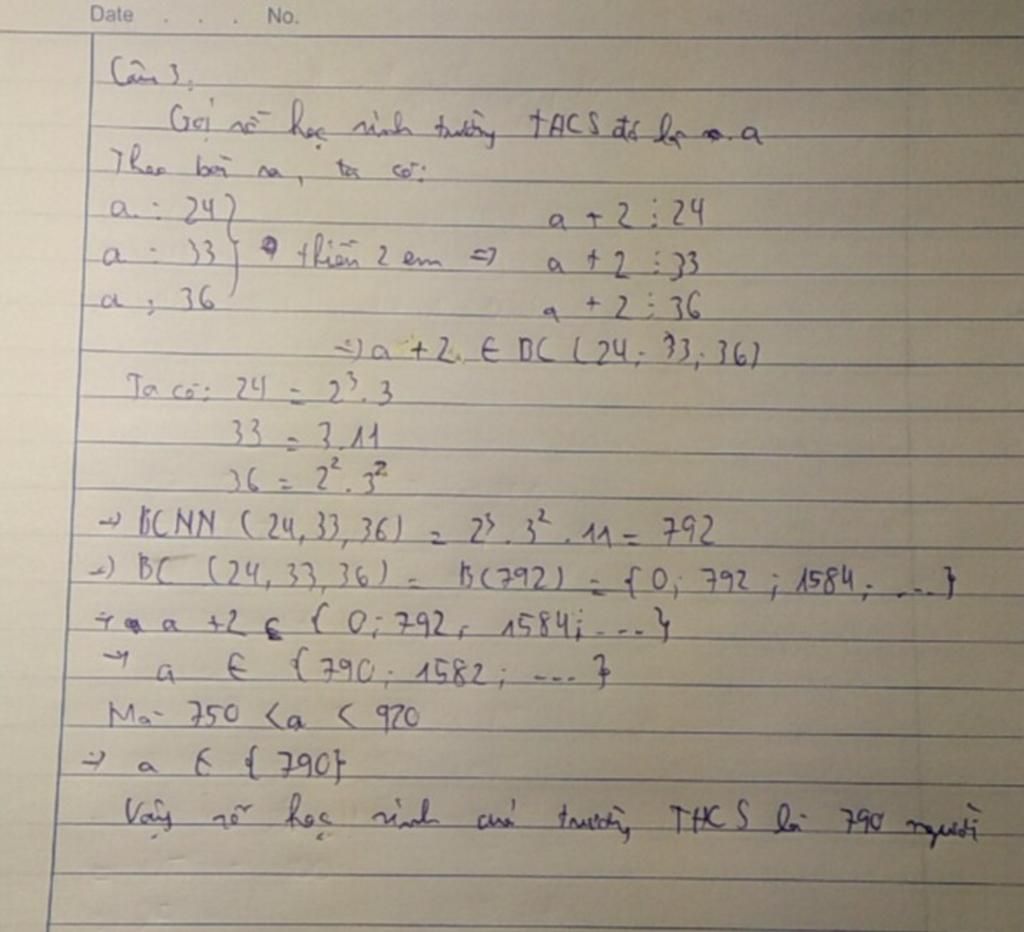 Date . . . No.
Câu 3.
Gọi số học sinh trường THCS đó là a
Theo bài ra, ta có:
a : 24 a + 2 ⋮ 24
a : 33 } thiếu 2 em => a + 2 ⋮ 33
a : 36 a + 2 ⋮ 36
=> a + 2 ∈ BC (24; 33; 36)
Ta có: 24 = 2³ . 3
33 = 3 . 11
36 = 2² . 3²
=> BCNN (24, 33, 36) = 2³ . 3² . 11 = 792
=> BC (24, 33, 36) = B(792) = { 0; 792 ; 1584; ... }
=> a + 2 ∈ { 0; 792; 1584; ... }
=> a ∈ { 790; 1582; ... }
Mà 750 < a < 920
=> a ∈ { 790 }
Vậy số học sinh của trường THCS là 790 người